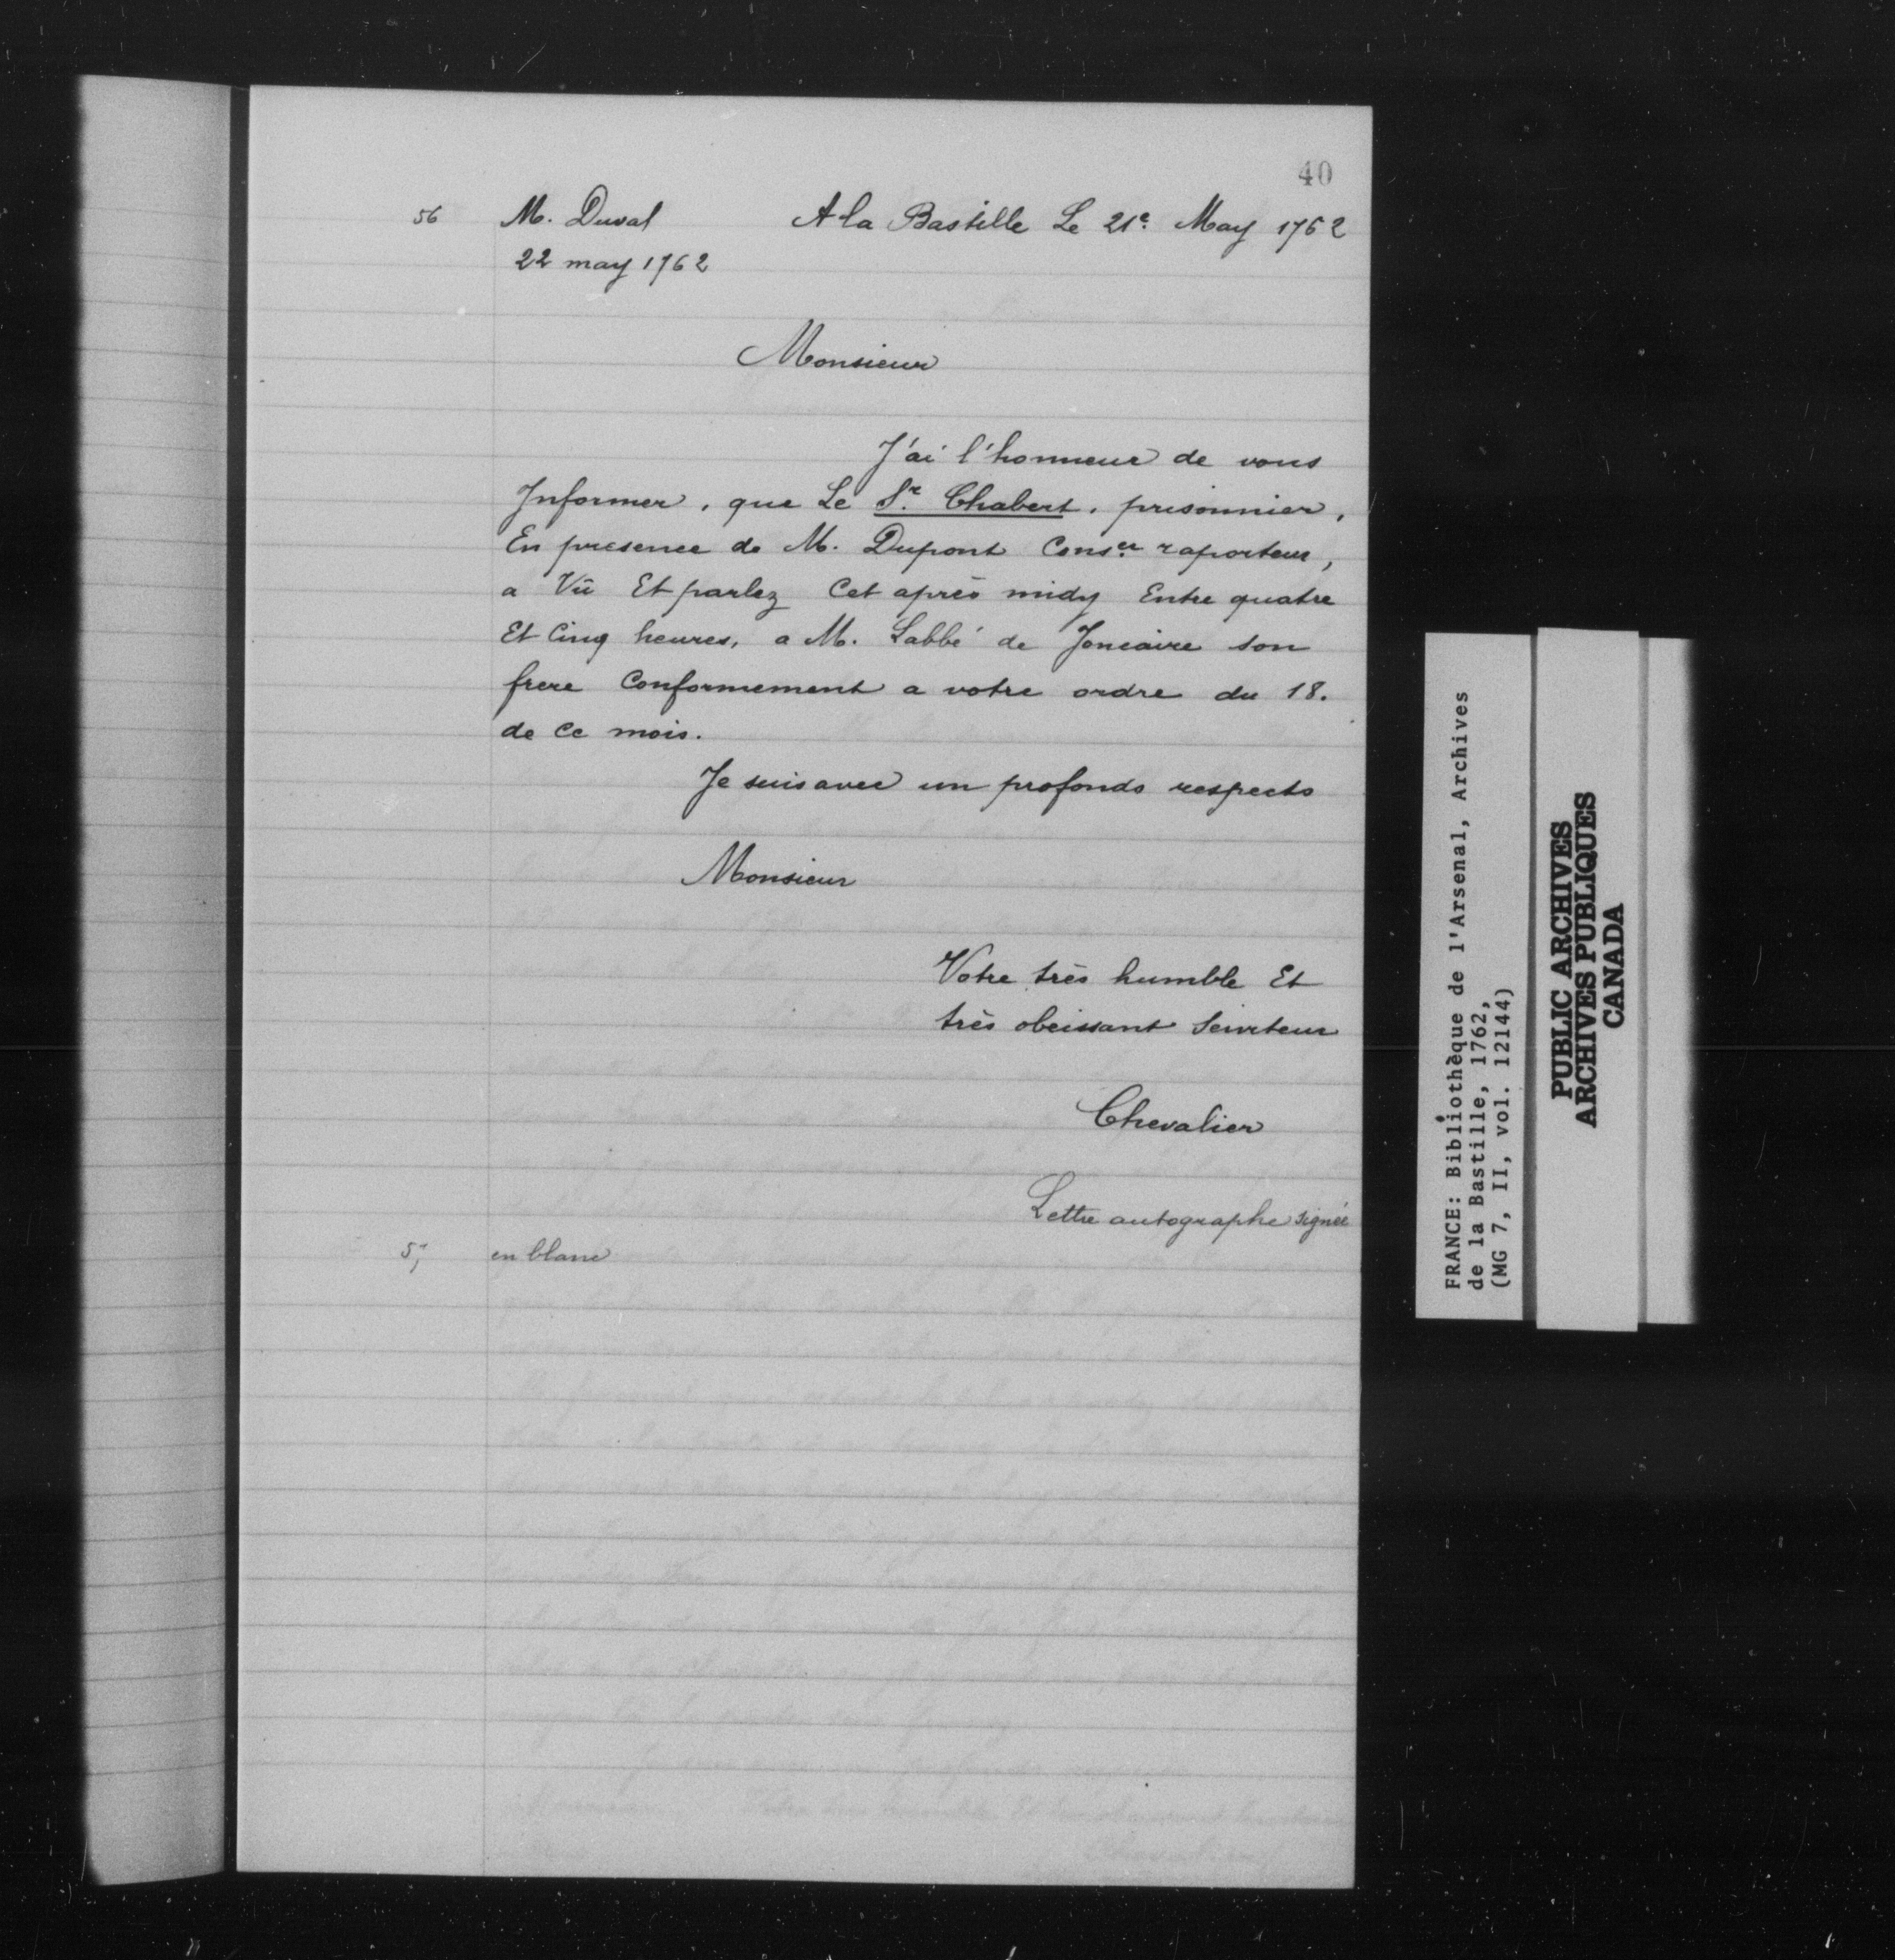 40
56 M. Duval A la Bastille Le 21e. May 1762
22 may 1762
Monsieur
J'ai l'honneur de vous
Informer, que Le Sr. Chabert, prisonnier,
En presence de M. Dupont Conser. raporteur,
a Vû Et parlez Cet après midy Entre quatre
Et Cinq heures, a M. Labbé de Joncaire son
frere Conformement a votre ordre du 18.
de Ce mois.
Je suis avec un profonds respects
Monsieur
Votre très humble Et
très obeissant Serviteur
Chevalier
Lettre autographe signée
57 en blanc
FRANCE: Bibliothèque de l'Arsenal, Archives
de la Bastille, 1762,
(MG 7, II, vol. 12144)
PUBLIC ARCHIVES
ARCHIVES PUBLIQUES
CANADA